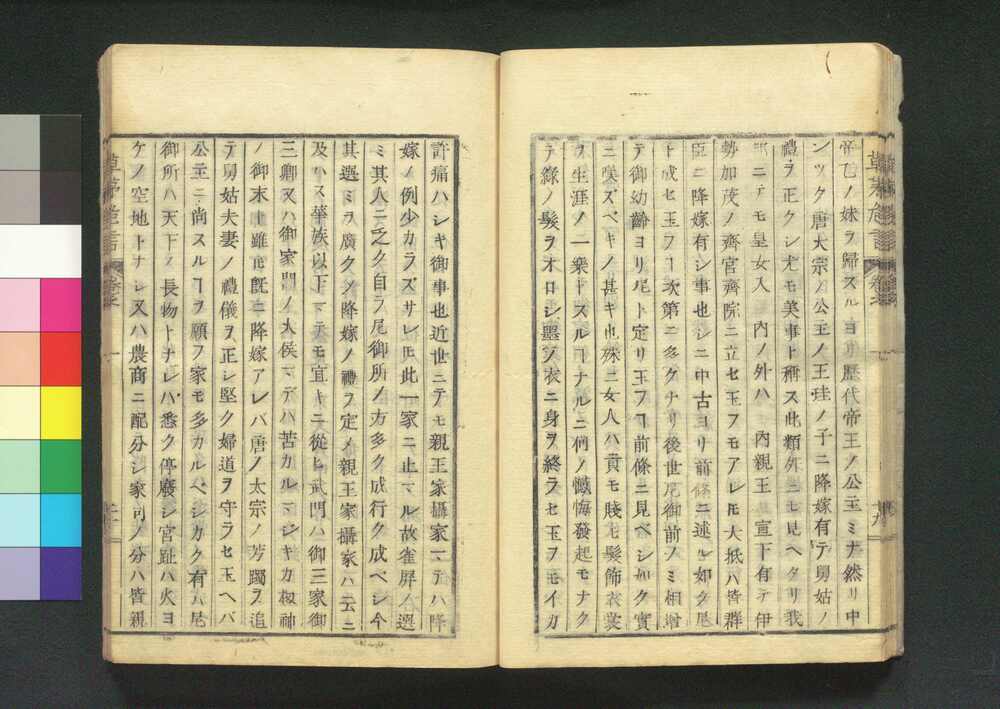 帝乙ノ妹ヲ歸スルヨリ歷代帝王ノ公主ミナ然リ中
ンツク唐大宗ノ公主ノ王珪ノ子ニ降嫁有テ舅姑ノ
禮ヲ正クシ尤モ美事ト稱ス此類外ニモ見ヘタリ我
邦ニテモ皇女人 內ノ外ハ 內親王 宣下有テ伊
勢加茂ノ齊官齊院ニ立セ玉フモアレ𪜈大抵ハ皆群
臣ニ降嫁有シ事也シニ中古ヨリ前條ニ述ル如ク尼
ト成セ玉フヿ次第ニ多クナリ後世尼御前ノミ相增
テ御幼齡ヨリ尼ト定リ玉フヿ前條ニ見ベシ如ク實
ニ嘆ズベキノ甚キ也殊ニ女人ハ貴モ賤モ髮飾衣裳
ヲ生涯ノ一樂トスルヿナルニ何ノ慨悔發起モナク
テ綠ノ髮ヲオロシ墨ノ衣ニ身ヲ終ラセ玉フモイカ
許痛ハシキ御事也近世ニテモ親王家攝家マテハ降
嫁ノ例少カラズサレ𪜈此一家ニ止マル故雀屏ノ選
ミ其人ニ乏ク自ラ尾御所ノ方多ク成行ク成ベシ今
其選ミヲ廣クノ降嫁ノ禮ヲ定メ親王家攝家ハ云ニ
及ハス華族以下マテモ宜キニ從ヒ武門ハ御三家御
三卿又ハ御家門ノ大侯マデハ苦カルマジキカ椒神
ノ御末ト雖𪜈旣ニ降嫁アレバ唐ノ太宗ノ芳躅ヲ追
テ舅姑夫妻ノ禮儀ヲ正シ堅ク婦道ヲ守ラセ玉ヘバ
公主ニ尚スルヿヲ願フ家モ多カルベシカク有ハ尼
御所ハ天下ノ長物トナレハ悉ク停廢シ宮趾ハ火ヨ
ケノ空地トナシ又ハ農商ニ配分シ家司ノ分ハ皆親